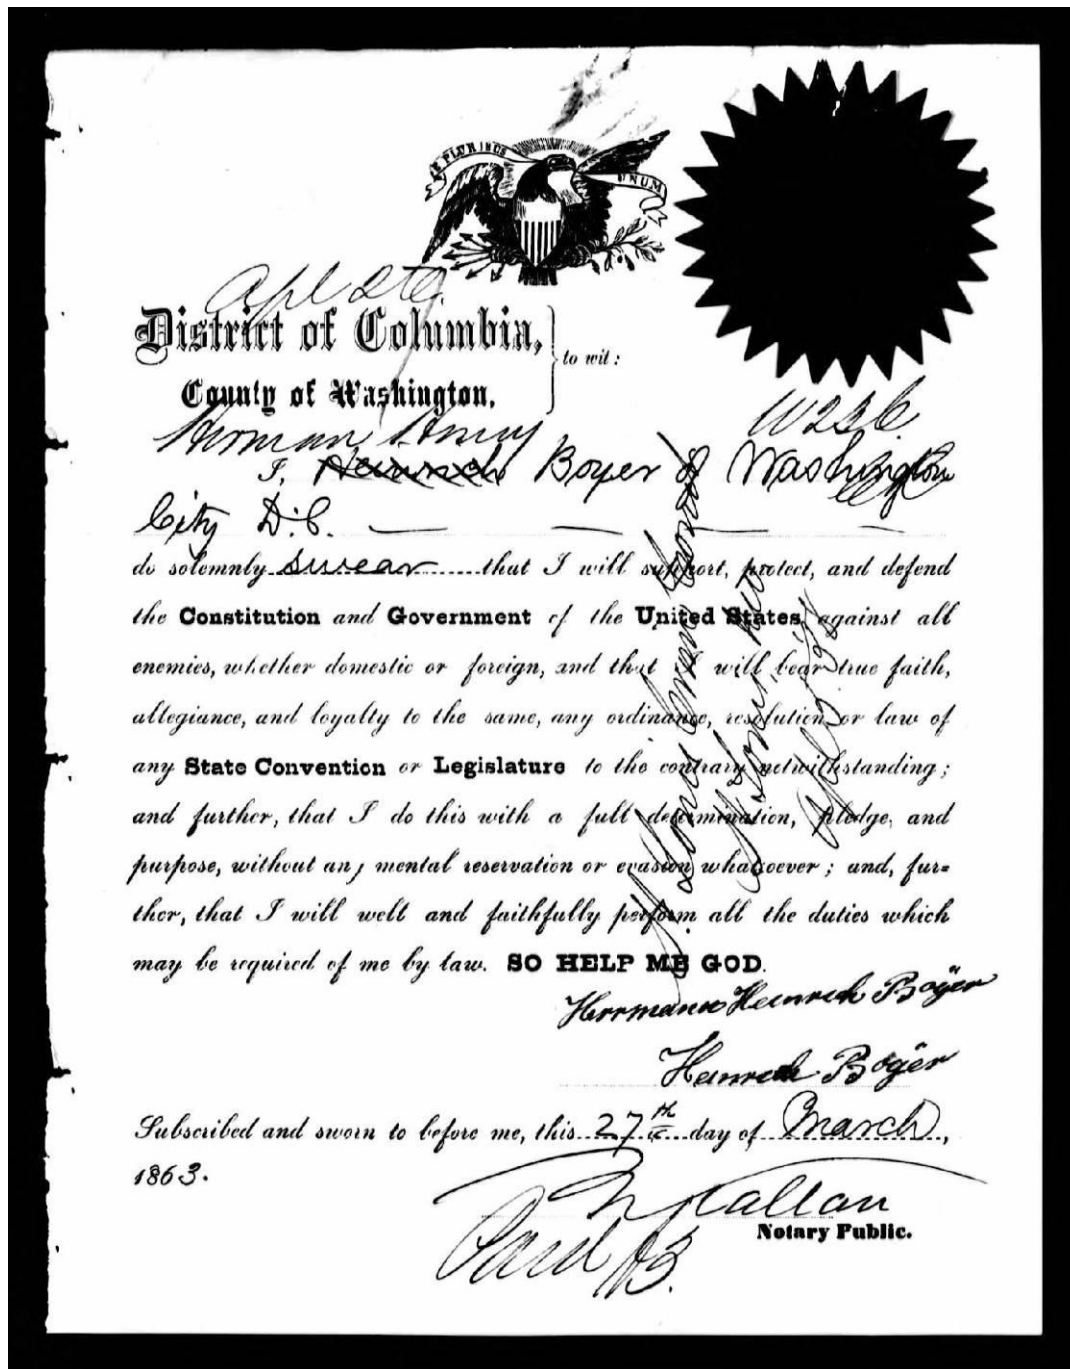 E PLURIBUS
UNUM
Apl 2
District of Columbia,
County of Washington.
to wit:
W236
Herman Henry
I, Heinrich Boyer of Washington
City D.C.
do solemnly swear that I will support, protect, and defend
the Constitution and Government of the United States, against all
enemies, whether domestic or foreign, and that I will bear true faith,
allegiance, and loyalty to the same, any ordinance, resolution or law of
any State Convention or Legislature to the contrary notwithstanding;
and further, that I do this with a full determination, pledge, and
purpose, without any mental reservation or evasion whatsoever; and, fur=
ther, that I will well and faithfully perform all the duties which
may be required of me by law. SO HELP ME GOD.
Herrmann Heinrich Böÿer
Heinrich Böÿer
Subscribed and sworn to before me, this 27th day of March,
1863.
Callan
Notary Public.
Paid